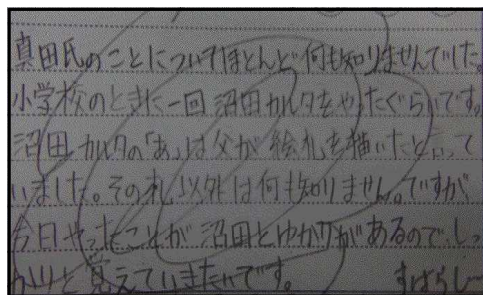 真田氏のことについてほとんど何も知りませんでした。
小学校のときに一回沼田カルタをやったぐらいです。
沼田カルタの「あ」は父が絵札を描いたと言って
いました。その札以外は何も知りません。ですが
今日やったことが沼田とゆかりがあるので、しっ
かりと覚えていきたいです。 すばらしい